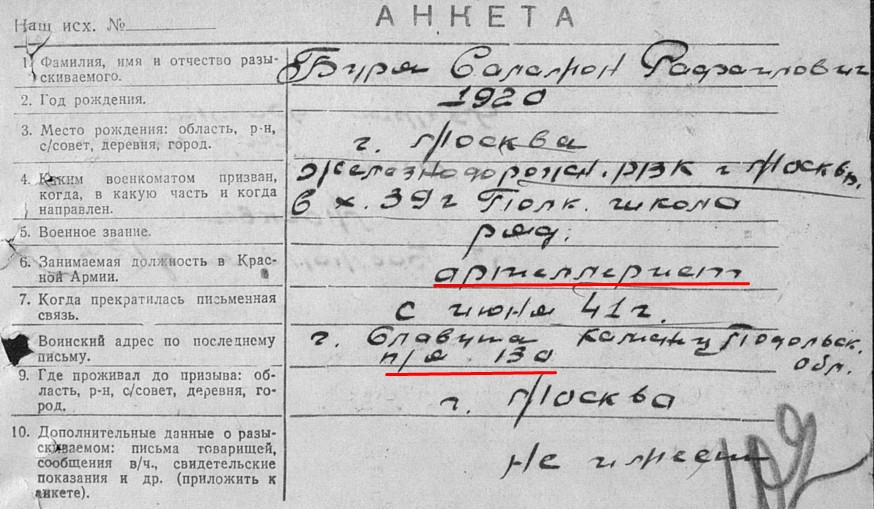 АНКЕТА
Наш исх. №
1. Фамилия, имя и отчество разы-
скиваемого.
Буря Саламон Рафаилович
2. Год рождения.
1920
3. Место рождения: область, р-н,
с/совет, деревня, город.
г. Москва
4. Каким военкоматом призван,
когда, в какую часть и когда
направлен.
Железнодорожн. РВК г Москвы.
6 х. 39 г Полк. школа
5. Военное звание.
ряд.
6. Занимаемая должность в Крас-
ной Армии.
артиллерист
7. Когда прекратилась письменная
связь.
с июня 41 г.
Воинский адрес по последнему
письму.
г. Славута Каменц Подольск.
обл.
п/я 130
9. Где проживал до призыва: об-
ласть, р-н, с/совет, деревня, го-
род.
г. Москва
10. Дополнительные данные о разы-
скиваемом: письма товарищей,
сообщения в/ч., свидетельские
показания и др. (приложить к
анкете).
Не имеет
102